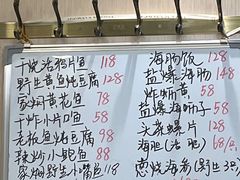 干烧活鸦片鱼 118
野生黄鱼炖豆腐 128
家焖黄花鱼 78
干炸小片口鱼 58
老板鱼炖豆腐 98
辣炒小鲍鱼 88
家焖野生小嘴鱼 118
海肠饭 128
盐爆海肠 148
炸蛎黄
盐爆海蛏子 58
头条螺片 128
海胆(活吧) 68/
葱烧海参